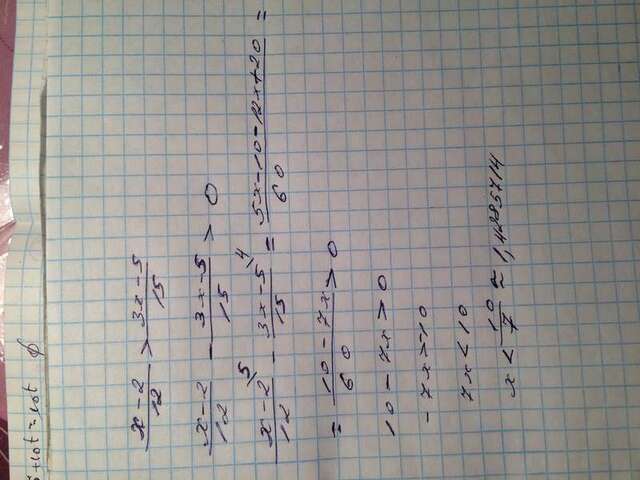 5+10t=10t ϕ
x-2/12 > 3x-5/15
x-2/12 - 3x-5/15 > 0
x-2\5/12 - 3x-5\4/15 = 5x-10-12x+20/60 =
= 10-7x/60 > 0
10-7x>0
-7x>-10
7x<10
x < 10/7 ≈ 1,4285714